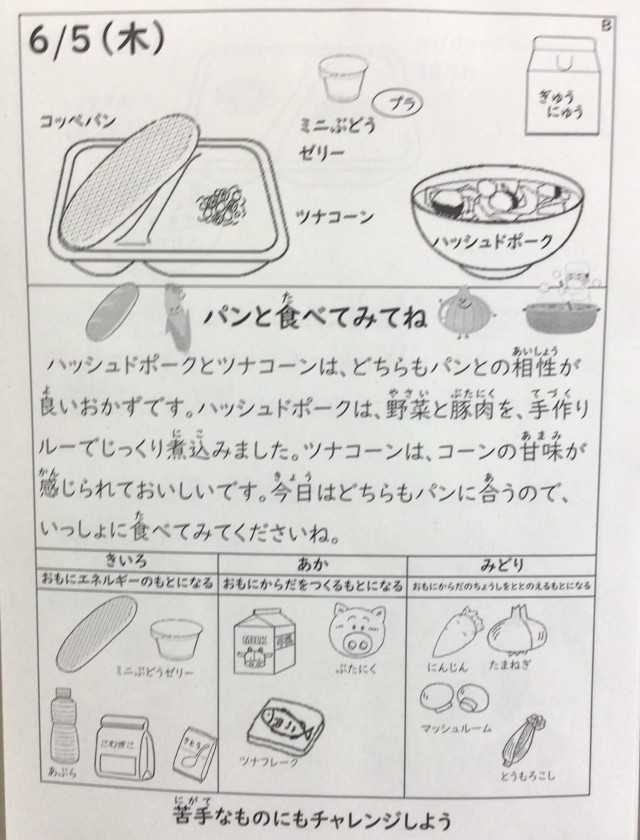 B
6/5(木)
コッペパン
ミニぶどう
ゼリー
プラ
ぎゅう
にゅう
ツナコーン
ハッシュドポーク
パンと食べてみてね
ハッシュドポークとツナコーンは、どちらもパンとの相性が
良いおかずです。ハッシュドポークは、野菜と豚肉を、手作り
ルーでじっくり煮込みました。ツナコーンは、コーンの甘味が
感じられておいしいです。今日はどちらもパンに合うので、
いっしょに食べてみてくださいね。
きいろ
おもにエネルギーのもとになる
ミニぶどうゼリー
あぶら
こむぎこ
さとう
あか
おもにからだをつくるもとになる
MILK
ぶたにく
ツナフレーク
みどり
おもにからだのちょうしをととのえるもとになる
にんじん
たまねぎ
マッシュルーム
とうもろこし
苦手なものにもチャレンジしよう